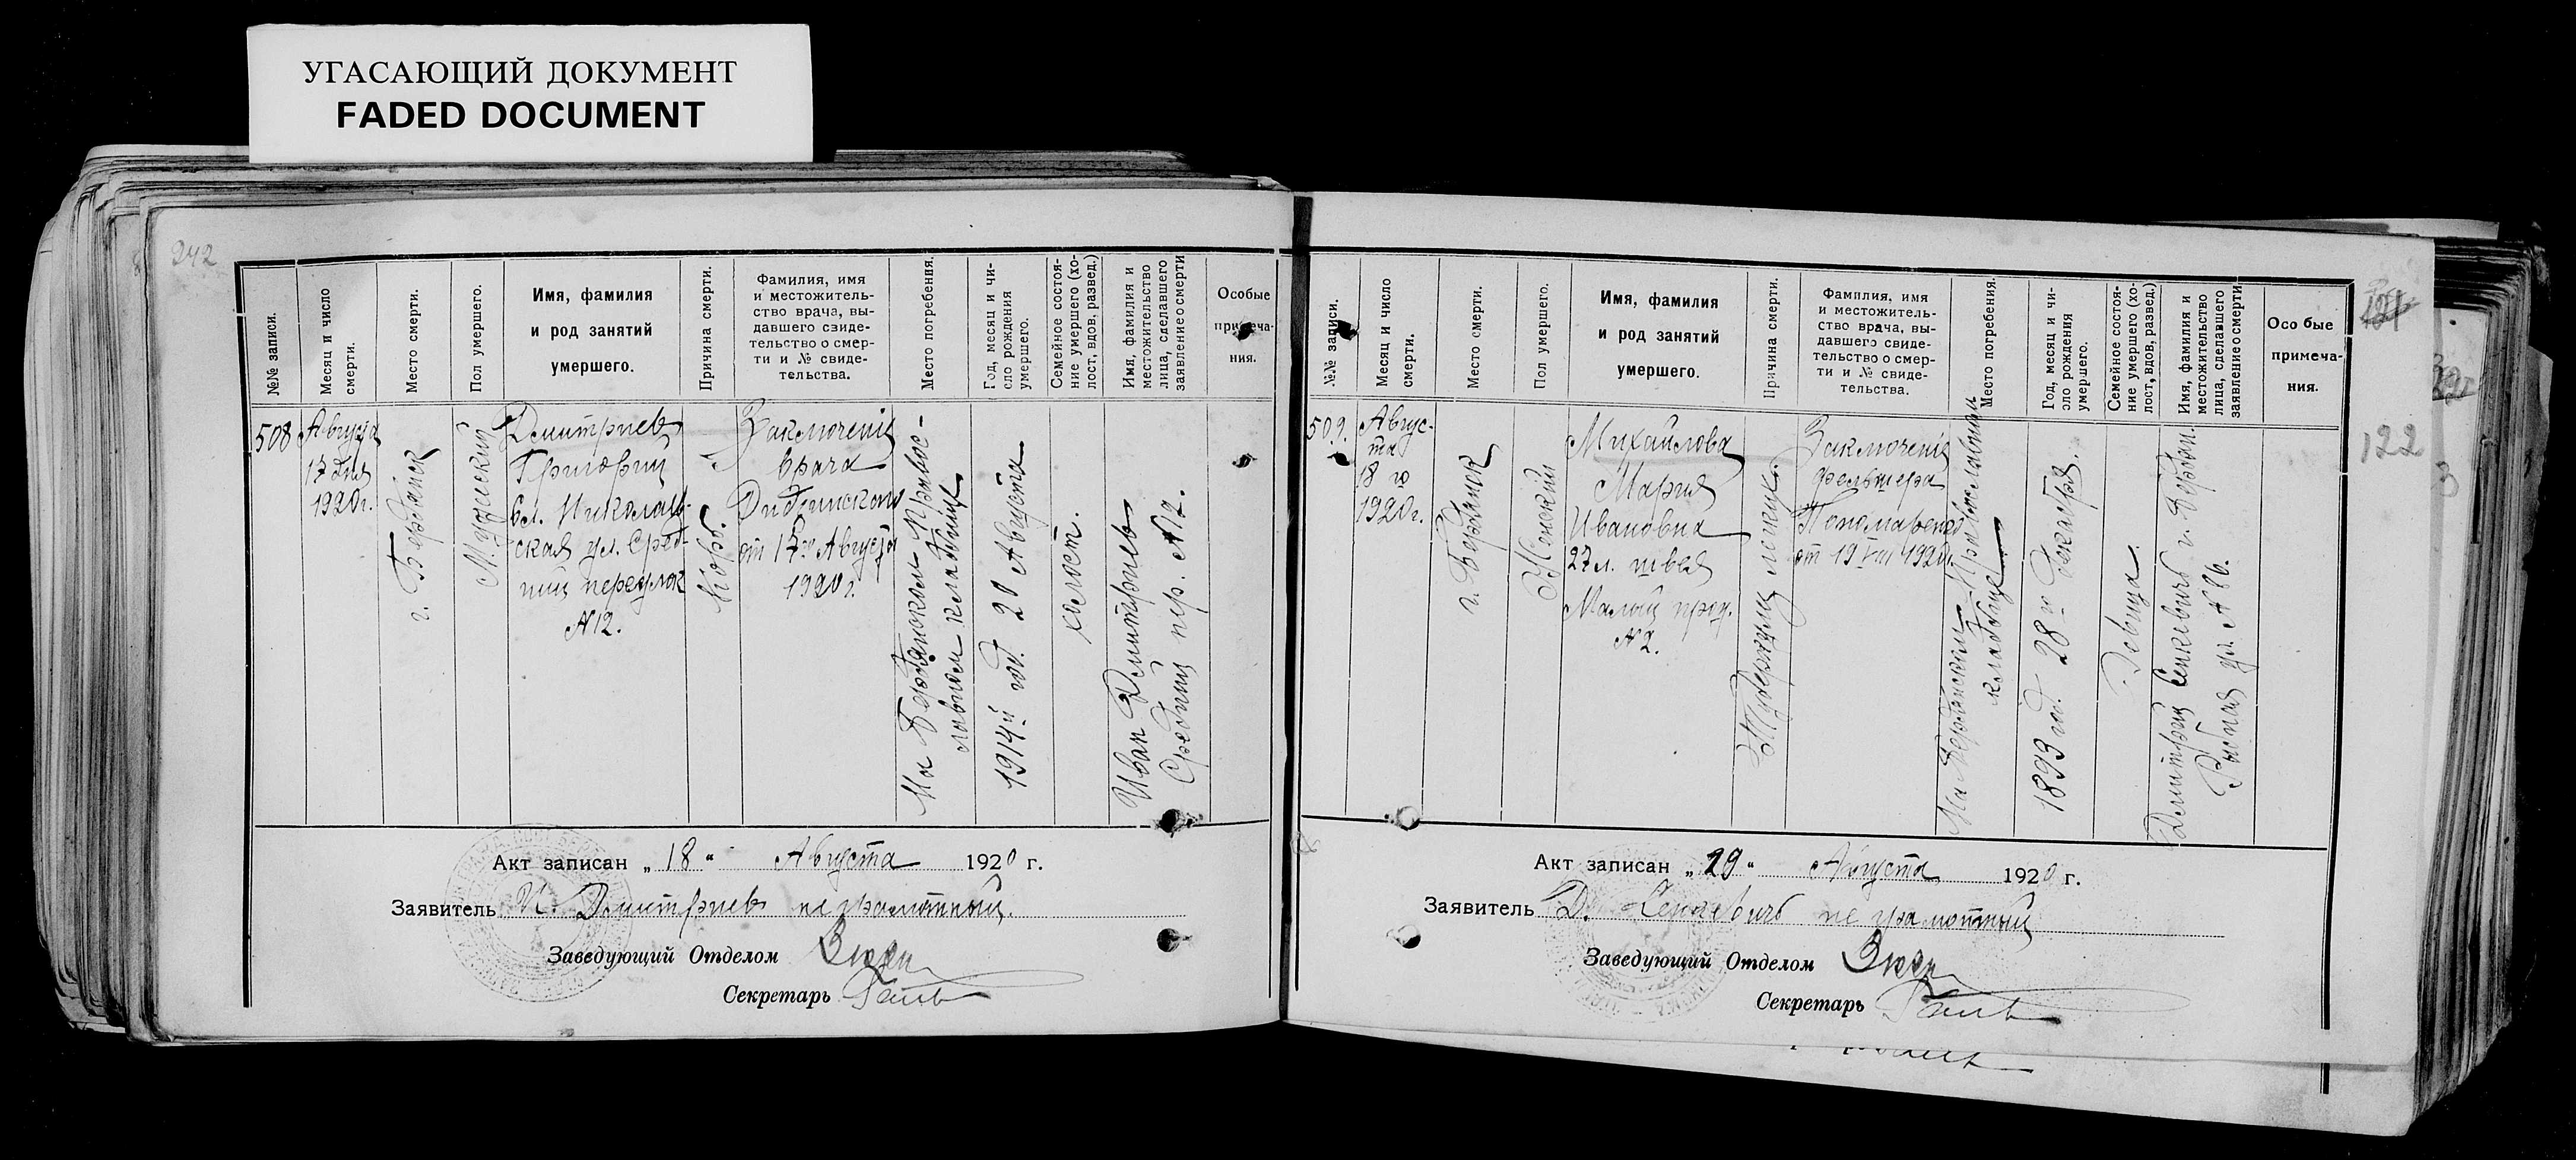 УГАСАЮЩИЙ ДОКУМЕНТ
FADED DOCUMENT
242
№№ записи.
Месяц и число
смерти.
Место смерти.
Пол умершего.
Имя, фамилия
и род занятий
умершего.
Причина смерти.
Фамилия, имя
и местожитель-
ство врача, вы-
давшего свиде-
тельство о смер-
ти и № свиде-
тельства.
Место погребения.
Год, месяц и чи-
сло рождения
умершего.
Семейное состоя-
ние умершего (хо-
лост, вдов, развед.)
Имя, фамилия и
местожительство
лица, сделавшего
заявление о смерти
Особые
примеча-
ния.
508
Августа
17 дня
1920 г.
г. Бердянск
Мужеский
Дмитриев
Григорий
бл. Николаев-
ская ул. Сред-
ний переулок
№ 12.
Корь.
Заключение
врача
от 17го Августа
1920 г.
На Бердянском Правос-
лавном кладбище
1914й год. 20 Августа
холост.
Иван Дмитриев
Средний пер. № 12.
Акт записан „18“ Августа 1920 г.
Заявитель И. Дмитриев неграмотный.
Заведующий Отделом
Секретарь
№№ записи.
Месяц и число
смерти.
Место смерти.
Пол умершего.
Имя, фамилия
и род занятий
умершего.
Причина смерти.
Фамилия, имя
и местожитель-
ство врача, вы-
давшего свиде-
тельство о смер-
ти и № свиде-
тельства.
Место погребения.
Год, месяц и чи-
сло рождения
умершего.
Семейное состоя-
ние умершего (хо-
лост, вдов, развед.)
Имя, фамилия и
местожительство
лица, сделавшего
заявление о смерти
Особые
примеча-
ния.
509.
Авгус-
та
18 го
1920 г.
г. Бердянск
Женский
Михайлова
Мария
Ивановна
27 л. швея
Малый прод.
№ 2.
Туберкулез легких.
Заключение
фельдшера
Пономаренко
от 19 VIII 1920 г.
На Бердянском Православном
кладбище
1893 год. 28го Декабря.
Девица.
Дмитрий Сенкевичъ г. Бердян.
Рыбная ул. № 86.
Акт записан „29“ Августа 1920 г.
Заявитель Д. Сенкевичъ неграмотный
Заведующий Отделом
Секретарь
121
122